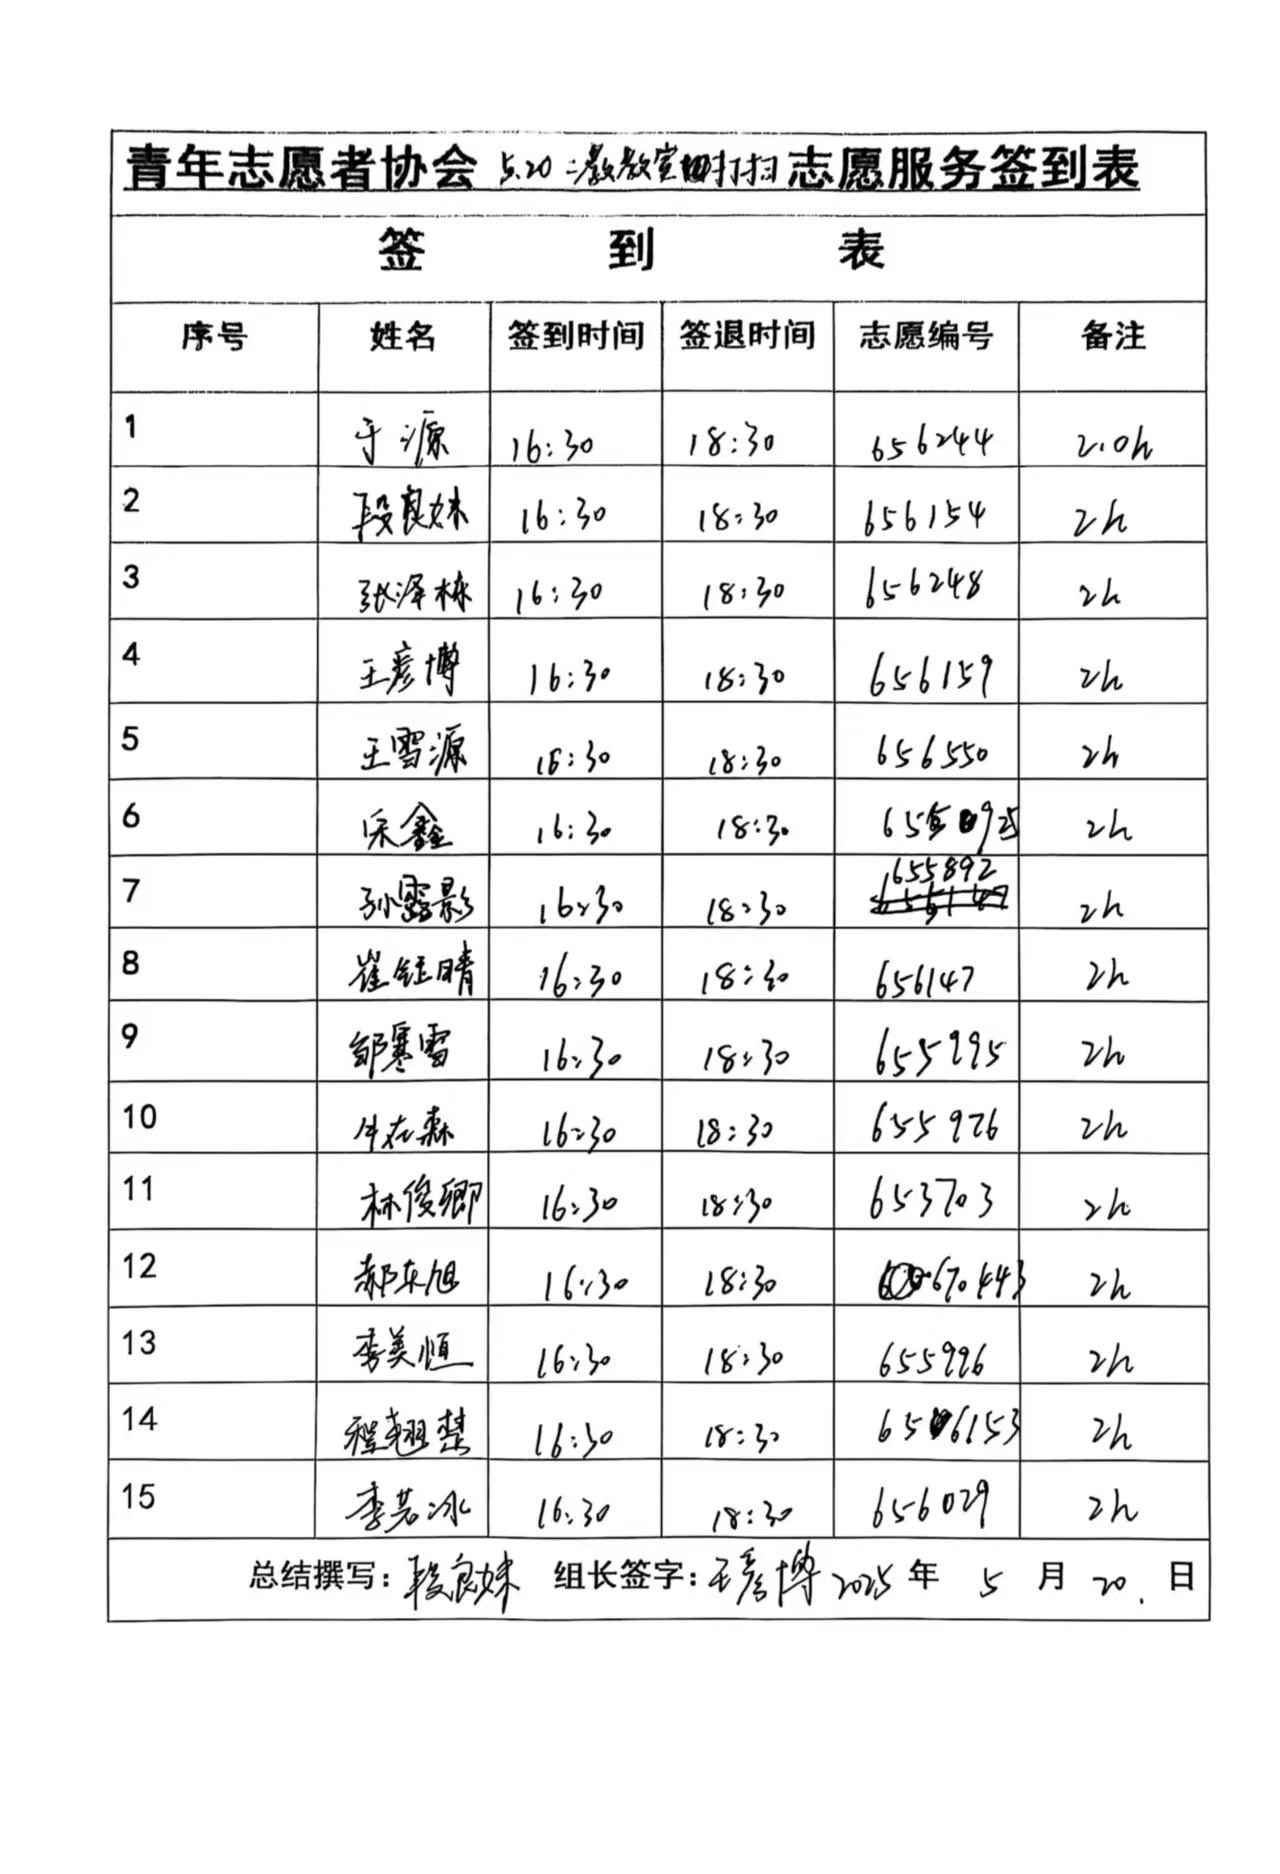 青年志愿者协会 5.20 二教教室打扫 志愿服务签到表
签 到 表
序号 姓名 签到时间 签退时间 志愿编号 备注
1 于源 16:30 18:30 656244 2.0h
2 段良妹 16:30 18:30 656154 2h
3 张泽林 16:30 18:30 656248 2h
4 王彦博 16:30 18:30 656159 2h
5 王雪源 16:30 18:30 656550 2h
6 宋鑫 16:30 18:30 2h
7 孙露影 16:30 18:30 655892 2h
8 崔钰晴 16:30 18:30 656147 2h
9 邹寒雪 16:30 18:30 655995 2h
10 牛在森 16:30 18:30 655926 2h
11 林俊卿 16:30 18:30 653703 2h
12 郝东旭 16:30 18:30 670443 2h
13 李美恒 16:30 18:30 655996 2h
14 程翘楚 16:30 18:30 656153 2h
15 李若冰 16:30 18:30 656029 2h
总结撰写：段良妹 组长签字：王彦博 2025 年 5 月 20. 日